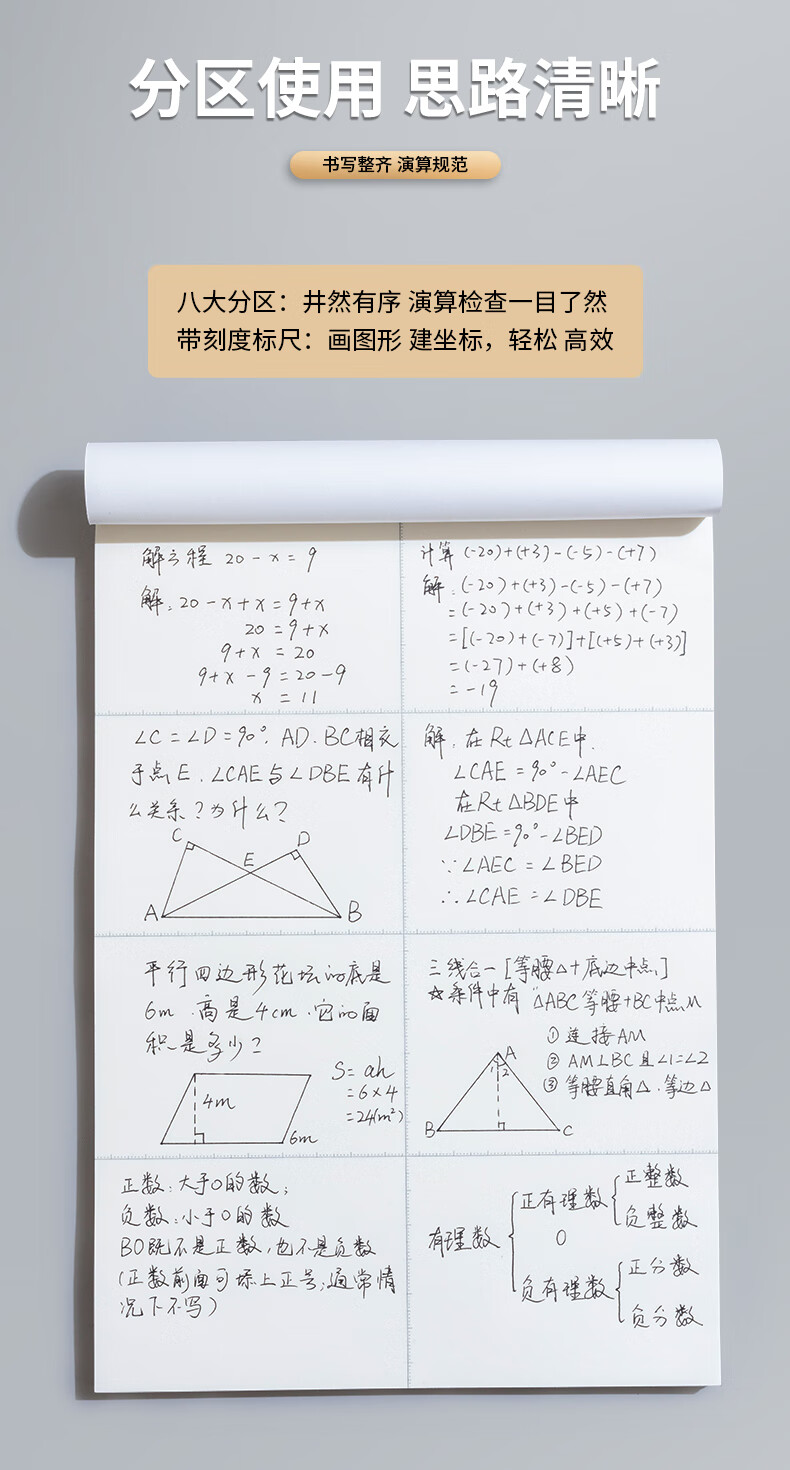 分区使用 思路清晰
书写整齐 演算规范
八大分区：井然有序 演算检查一目了然
带刻度标尺：画图形 建坐标，轻松 高效
解方程 20-x=9
解：20-x+x=9+x
20=9+x
9+x=20
9+x-9=20-9
x=11
计算(-20)+(+3)-(-5)-(+7)
解：(-20)+(+3)-(-5)-(+7)
=(-20)+(+3)+(+5)+(-7)
=[(-20)+(-7)]+[(+5)+(+3)]
=(-27)+(+8)
=-19
∠C=∠D=90°，AD、BC相交
于点E，∠CAE与∠DBE有什
么关系？为什么？
C
D
E
A
B
解，在Rt△ACE中，
∠CAE=90°-∠AEC
在Rt△BDE中
∠DBE=90°-∠BED
∵∠AEC=∠BED
∴∠CAE=∠DBE
平行四边形花坛的底是
6m，高是4cm，它的面
积是多少？
4m
6m
S=ah
=6×4
=24(m²)
三线合一[等腰△+底边中点]
☆条件中有"△ABC等腰+BC中点M
①连接AM
②AM⊥BC且∠1=∠2
③等腰直角△，等边△
A
1
2
B
C
正数：大于0的数；
负数：小于0的数
BO既不是正数，也不是负数
(正数前面可添上正号；通常情
况下不写)
有理数
正有理数
正整数
负整数
0
负有理数
正分数
负分数